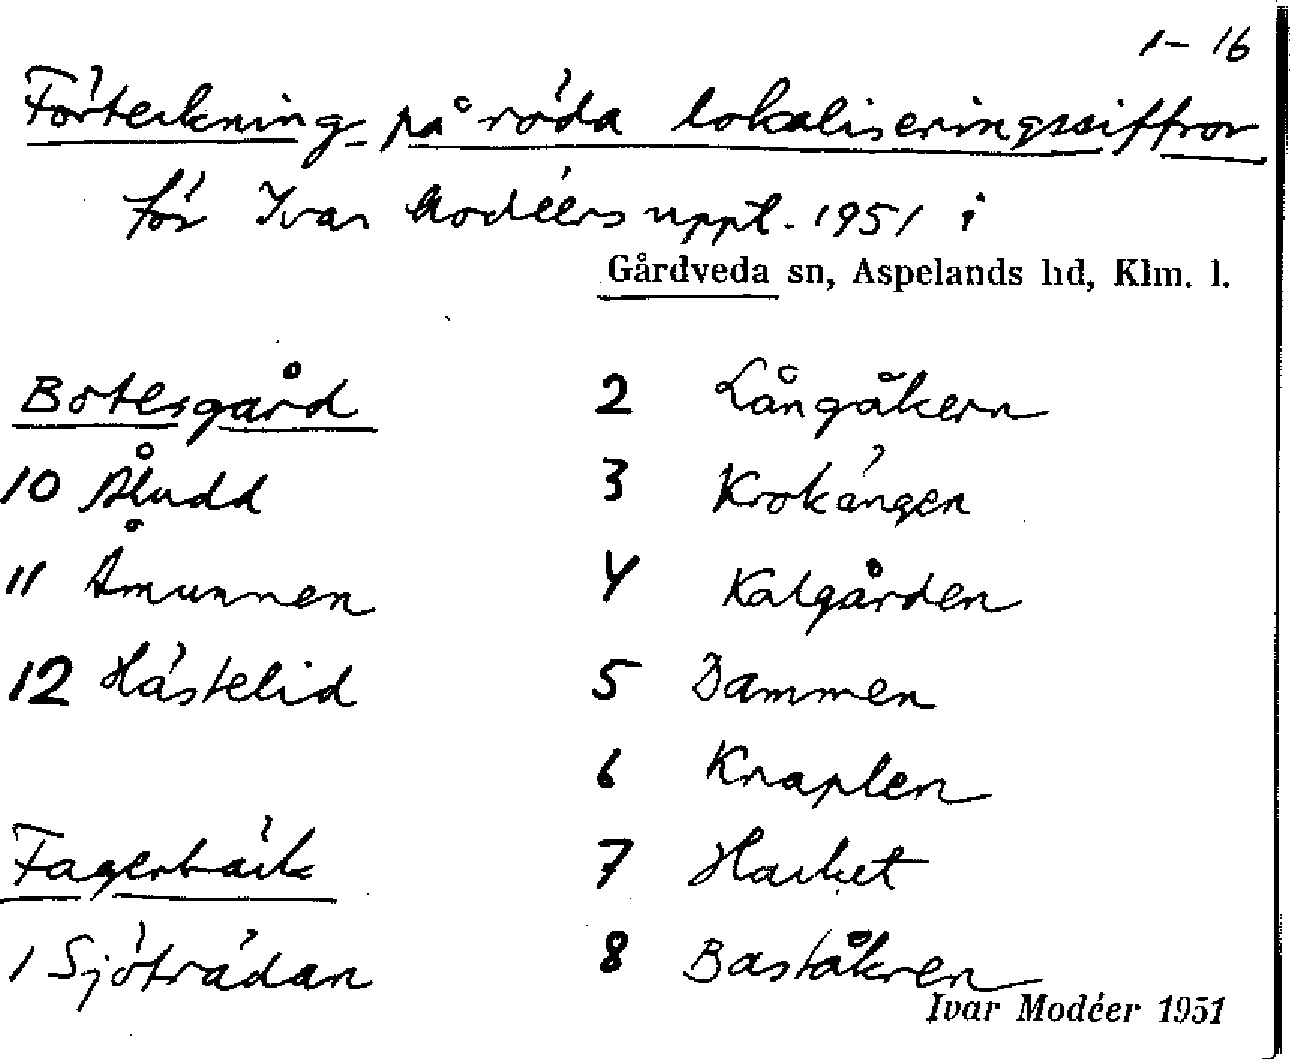 1-16
Förteckning på röda lokaliseringssiffror
för Ivar Modéers uppt. 1951 i
Gårdveda sn, Aspelands hd, Klm. l.
Botesgård
10 Åludd
11 Åmunnen
12 Hästelid
Fagerbäck
1 Sjöträdan
2 Långåkern
3 Krokängen
4 Kalgården
5 Dammen
6 Knaplen
7 Hacket
8 Baståkren
Ivar Modéer 1951